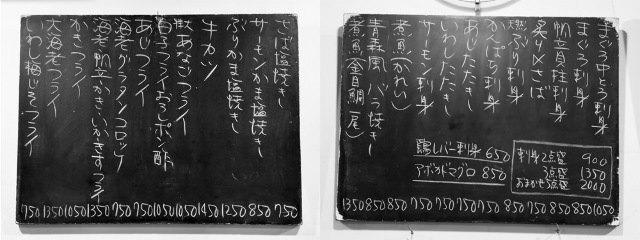 さば塩焼き
サーモンかま塩焼き
ぶりかま塩焼き
牛カツ
あなごフライ
白子フライおろしポン酢
あじフライ
海老グラタンコロッケ
海老帆立かきいかきすフライ
かきフライ
大海老フライ
いわし梅じそフライ
750 1350 1050 1350 750 750 1050 1050 1450 1250 850 750
まぐろ中とろ刺身
まぐろ刺身
帆立貝柱刺身
炙り〆さば
天然ぶり刺身
かんぱち刺身
あじたたき
いわしたたき
サーモン刺身
煮魚(かれい)
青森風バラ焼き
煮魚(金目鯛一尾)
鶏レバー刺身 650
アボカドマグロ 850
刺身2点盛 900
3点盛 1350
おまかせ5点盛 2000
1350 850 850 750 750 750 750 850 750 850 850 1050